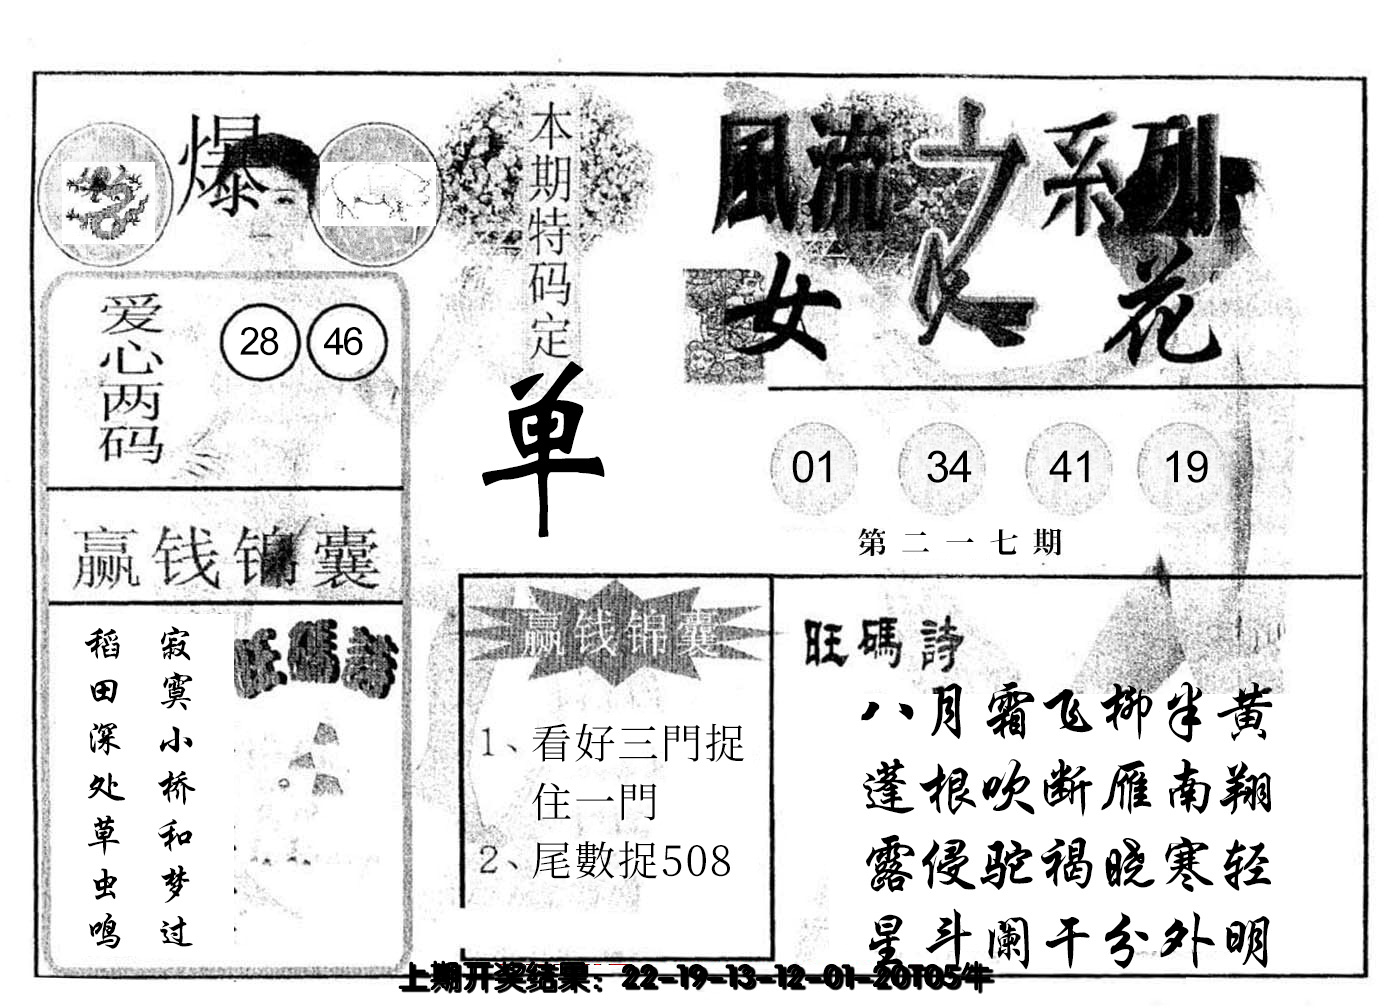 爆
本期特码定
单
風流之系列
女人花
爱心两码
28 46
01 34 41 19
第二一七期
赢钱锦囊
寂寞小桥和梦过
稻田深处草虫鸣
旺碼詩
赢钱锦囊
1、看好三門捉
住一門
2、尾數捉508
旺碼詩
八月霜飞柳半黄
蓬根吹断雁南翔
露侵驼褐晓寒轻
星斗阑干分外明
上期开奖结果：22-19-13-12-01-20T05牛